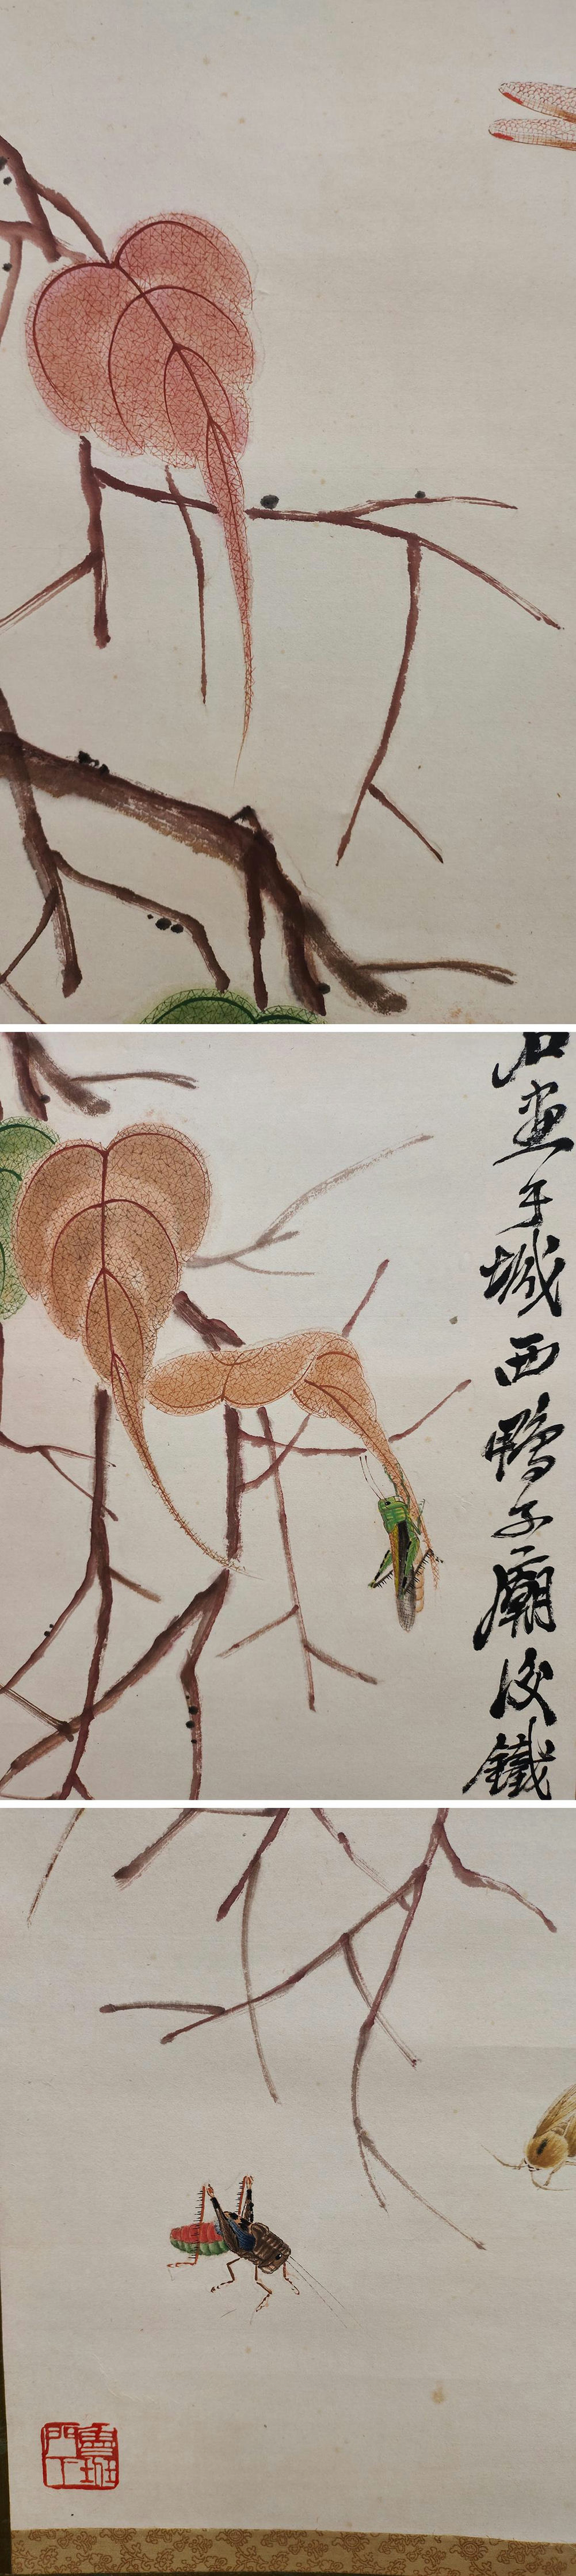 石畫于城西鴨子廟後鐵
魯班門下